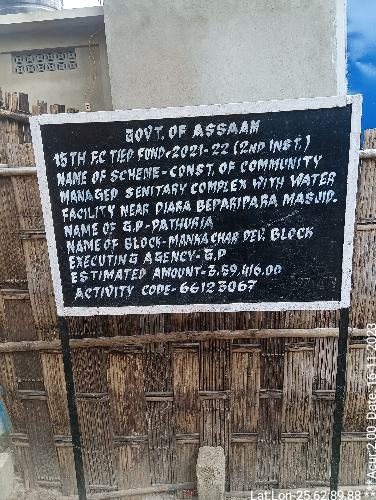 GOVT. OF ASSAAM
15TH F.C TIED FOND, 2021-22 (2ND INST.)
NAME OF SCHEME-CONST. OF COMMUNITY
MANAGED SENITARY COMPLEX WITH WATER
FACILITY NEAR DIARA BEPARIPARA MASJID.
NAME OF G.P-PATHURIA
NAME OF BLOCK-MANKACHAR DEV. BLOCK
EXECUTING AGENCY-G.P
ESTIMATED AMOUNT-3,59,416.00
ACTIVITY CODE-66123067
Lat Lon-25.62 89.88 **
**Acur:2.00 Date:16-11-2023